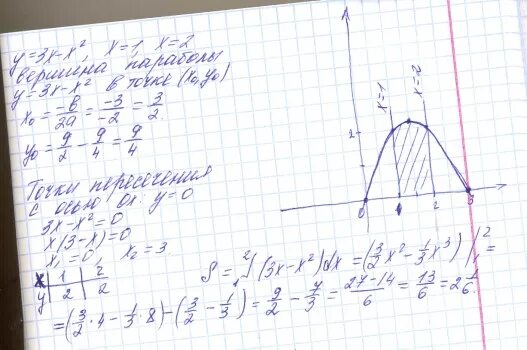 y=3x-x² x=1, x=2
вершина параболы
y=3x-x² в точке (x₀,y₀)
x₀=-b/2a=-3/-2=3/2
y₀=9/2-9/4=9/4
Точки пересечения
с осью ox: y=0
3x-x²=0
x(3-x)=0
x₁=0, x₂=3
x | 1 | 2
y | 2 | 2
S=₁∫²(3x-x²)dx=(3/2x²-1/3x³)/₁²=
=(3/2·4-1/3·8)-(3/2-1/3)=9/2-7/3=27-14/6=13/6=2 1/6.
x=1
x=2
2
0
1
2
3